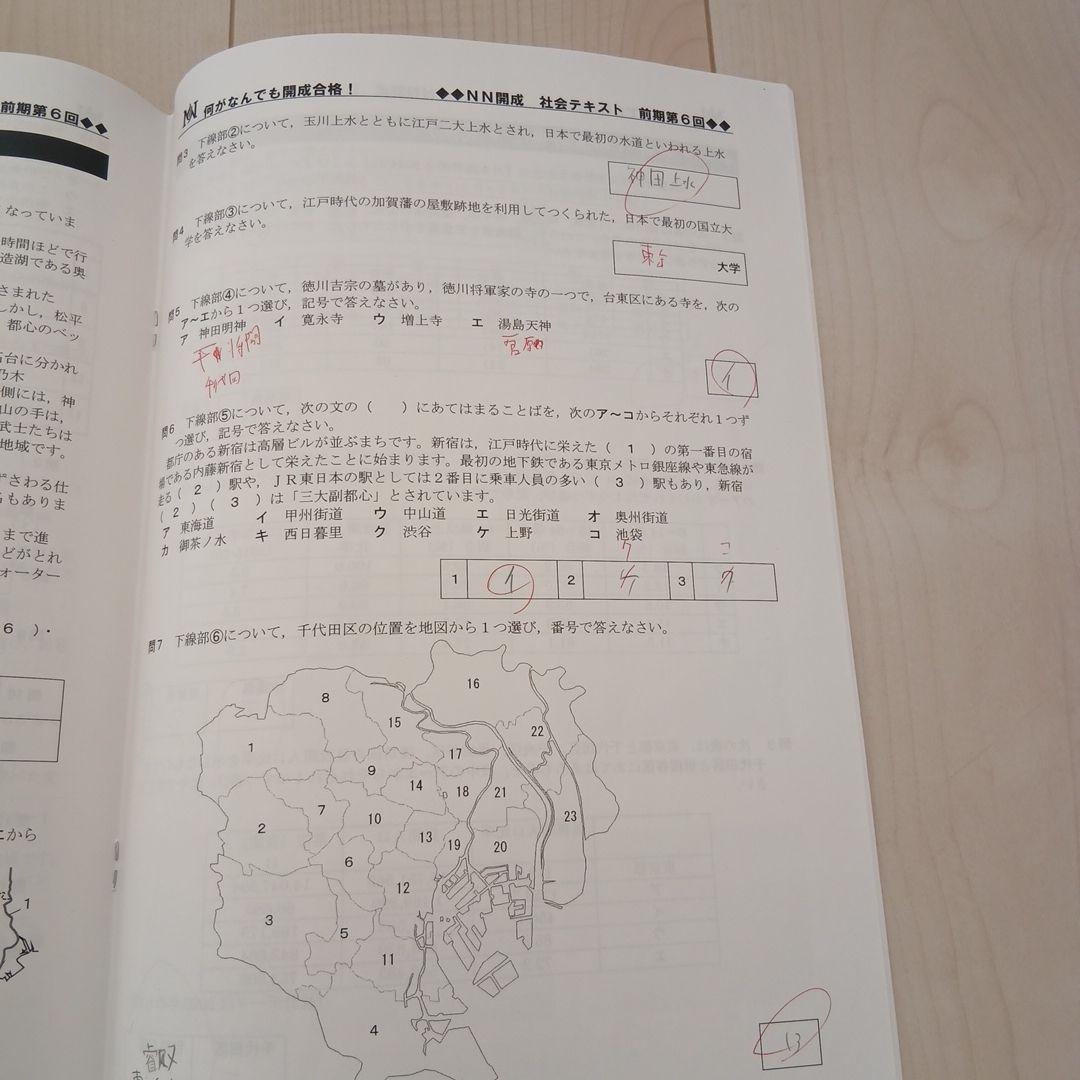 前期第６回◆◆
くなっていま
時間ほどで行
造湖である奥
さされた
しかし，松平
都心のベッ
高台に分かれ
乃木
側には，神
山の手は，
武士たちは
地域です。
ずさわる仕
名もありま
まで進
どがとれ
ォーター
６　）・
エから
1
NN 何がなんでも開成合格！
◆◆ＮＮ開成　社会テキスト　前期第６回◆◆
問3　下線部②について，玉川上水とともに江戸二大上水とされ，日本で最初の水道といわれる上水
を答えなさい。
神田上水
問4　下線部③について，江戸時代の加賀藩の屋敷跡地を利用してつくられた，日本で最初の国立大
学を答えなさい。
東京　大学
問5　下線部④について，徳川吉宗の墓があり，徳川将軍家の寺の一つで，台東区にある寺を，次の
ア～エから１つ選び，記号で答えなさい。
ア　神田明神　イ　寛永寺　ウ　増上寺　エ　湯島天神
イ
問6　下線部⑤について，次の文の（　　）にあてはまることばを，次のア～コからそれぞれ１つず
つ選び，記号で答えなさい。
都庁のある新宿は高層ビルが並ぶまちです。新宿は，江戸時代に栄えた（　１　）の第一番目の宿
場である内藤新宿として栄えたことに始まります。最初の地下鉄である東京メトロ銀座線や東急線が
走る（　２　）駅や，ＪＲ東日本の駅としては２番目に乗車人員の多い（　３　）駅もあり，新宿
（　２　）（　３　）は「三大副都心」とされています。
ア　東海道　イ　甲州街道　ウ　中山道　エ　日光街道　オ　奥州街道
カ　御茶ノ水　キ　西日暮里　ク　渋谷　ケ　上野　コ　池袋
ク　コ
1　イ　2　ケ　3　ク
問7　下線部⑥について，千代田区の位置を地図から１つ選び，番号で答えなさい。
16
8
15
22
1
17
9
14
18
21
7
10
23
2
13
19
20
6
12
3
5
11
4
13
叡